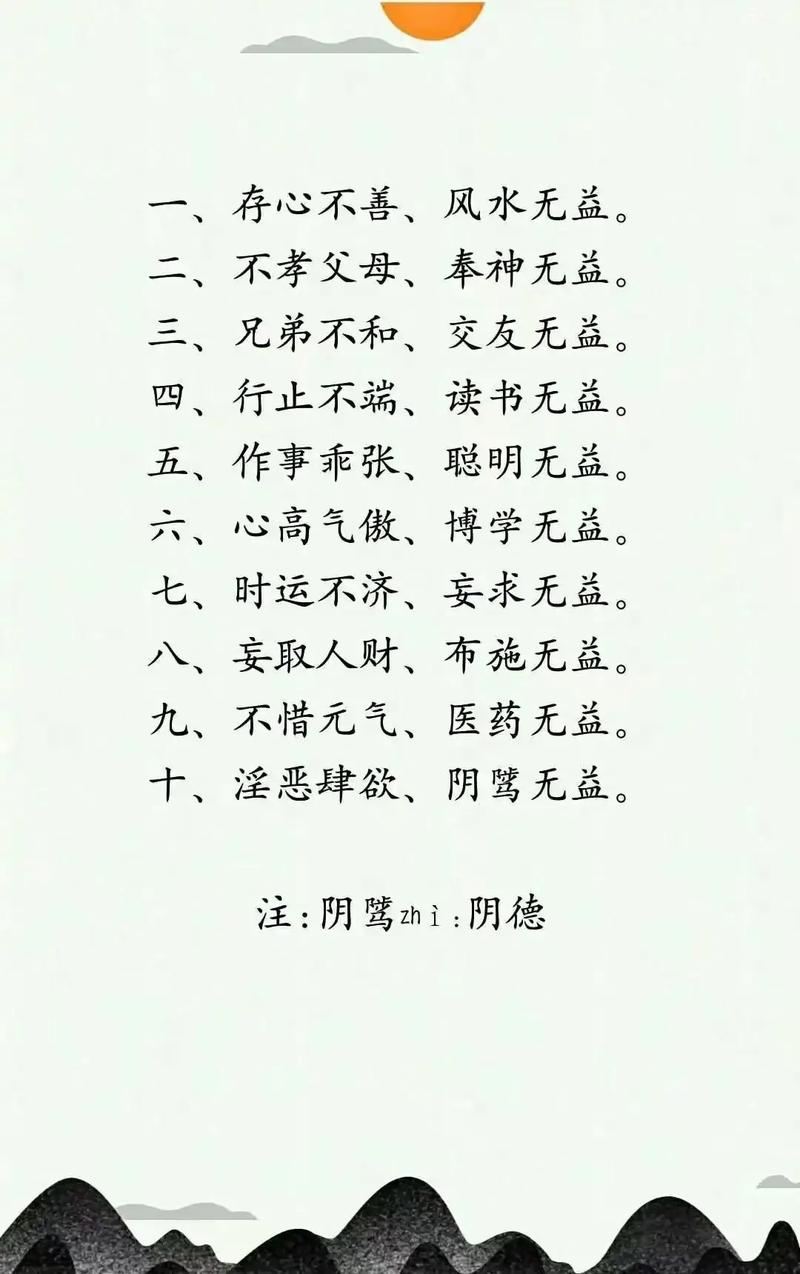 一、存心不善、风水无益。
二、不孝父母、奉神无益。
三、兄弟不和、交友无益。
四、行止不端、读书无益。
五、作事乖张、聪明无益。
六、心高气傲、博学无益。
七、时运不济、妄求无益。
八、妄取人财、布施无益。
九、不惜元气、医药无益。
十、淫恶肆欲、阴骘无益。
注:阴骘zhì:阴德